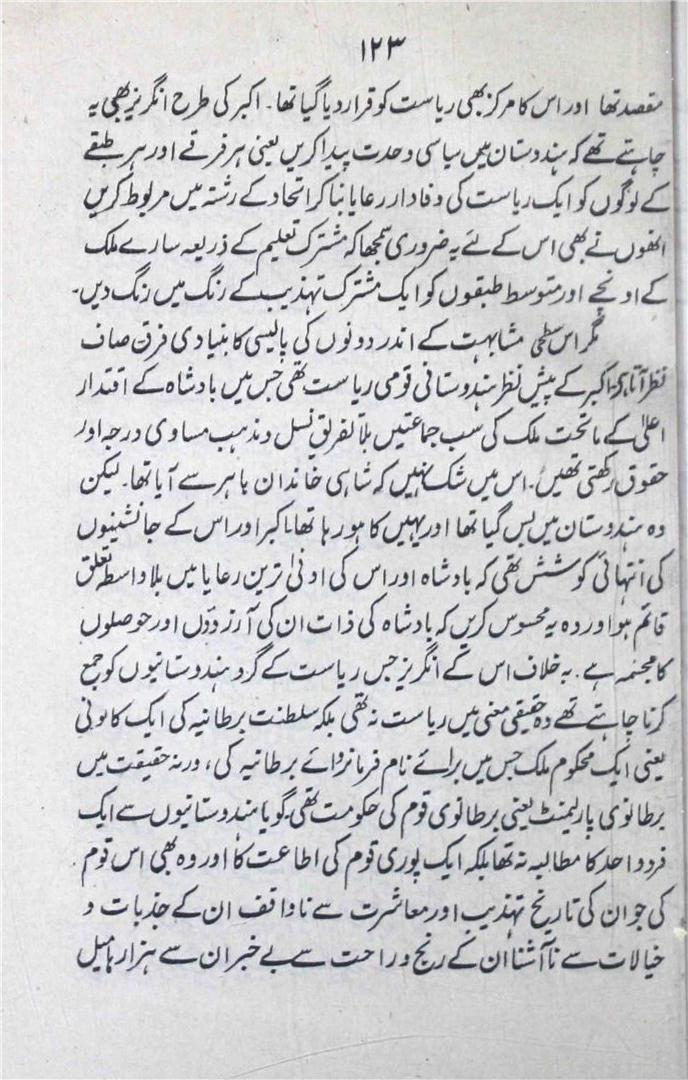 ۱۲۳
مقصد تھا اور اس کا مرکز بھی ریاست کو قرار دیا گیا تھا۔ اکبر کی طرح انگریز بھی یہ
چاہتے تھے کہ ہندوستان میں سیاسی وحدت پیدا کریں یعنی ہر فرقے اور ہر طبقے
کے لوگوں کو ایک ریاست کی وفادار رعایا بنا کر اتحاد کے رشتہ میں مربوط کریں
انھوں نے بھی اس کے لئے یہ ضروری سمجھا کہ مشترک تعلیم کے ذریعہ سارے ملک
کے اونچے اور متوسط طبقوں کو ایک مشترک تہذیب کے رنگ میں رنگ دیں۔
مگر اس سطحی مشابہت کے اندر دونوں کی پالیسی کا بنیادی فرق صاف
نظر آتا ہے۔ اکبر کے پیش نظر ہندوستانی قومی ریاست تھی جس میں بادشاہ کے اقتدار
اعلیٰ کے ماتحت ملک کی سب جماعتیں بلا تفریق نسل و مذہب مساوی درجہ اور
حقوق رکھتی تھیں۔ اس میں شک نہیں کہ شاہی خاندان باہر سے آیا تھا۔ لیکن
وہ ہندوستان میں بس گیا تھا اور یہیں کا ہو رہا تھا۔ اکبر اور اس کے جانشینوں
کی انتہائی کوشش تھی کہ بادشاہ اور اس کی ادنیٰ ترین رعایا میں بلا واسطہ تعلق
قائم ہو اور وہ یہ محسوس کریں کہ بادشاہ کی ذات ان کی آرزوؤں اور حوصلوں
کا مجسمہ ہے۔ بہ خلاف اس کے انگریز جس ریاست کے گرد ہندوستانیوں کو جمع
کرنا چاہتے تھے وہ حقیقی معنی میں ریاست نہ تھی بلکہ سلطنت برطانیہ کی ایک کالونی
یعنی ایک محکوم ملک جس میں برائے نام فرمانروائے برطانیہ کی، ورنہ حقیقت میں
برطانوی پارلیمنٹ یعنی برطانوی قوم کی حکومت تھی۔ گویا ہندوستانیوں سے ایک
فرد واحد کا مطالبہ نہ تھا بلکہ ایک پوری قوم کی اطاعت کا اور وہ بھی اس قوم
کی جو ان کی تاریخ تہذیب اور معاشرت سے ناواقف ان کے جذبات و
خیالات سے نا آشنا ان کے رنج و راحت سے بے خبر ان سے ہزارہا میل